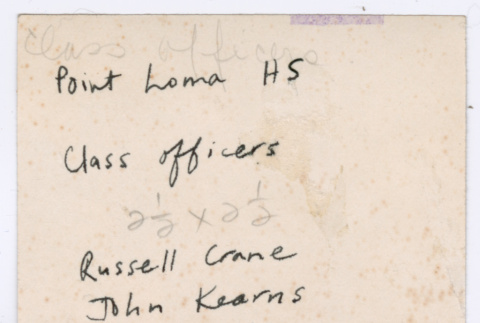 class officers
Point Loma HS
Class officers
2½ x 2½
Russell Crane
John Kearns